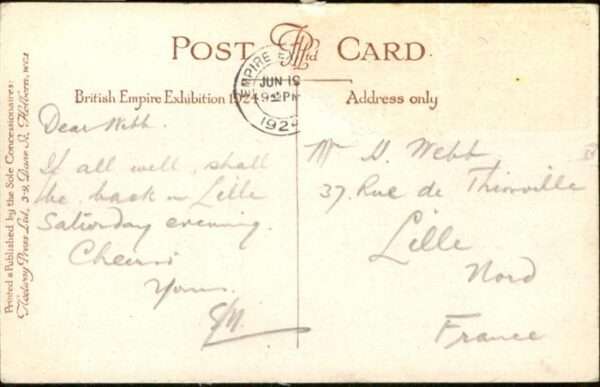 POST CARD
FPLtd
British Empire Exhibition 1924
Address only
EMPIRE
JUN 19
1924
Printed & Published by the Sole Concessionaires:
Fleetway Press Ltd, 3-9, Dane St, Holborn, WC1
Dear Webb.
If all well, shall
be back in Lille
Saturday evening.
Cheerio
Yours.
Mr Webb
37. Rue de Thionville
Lille
Nord
France